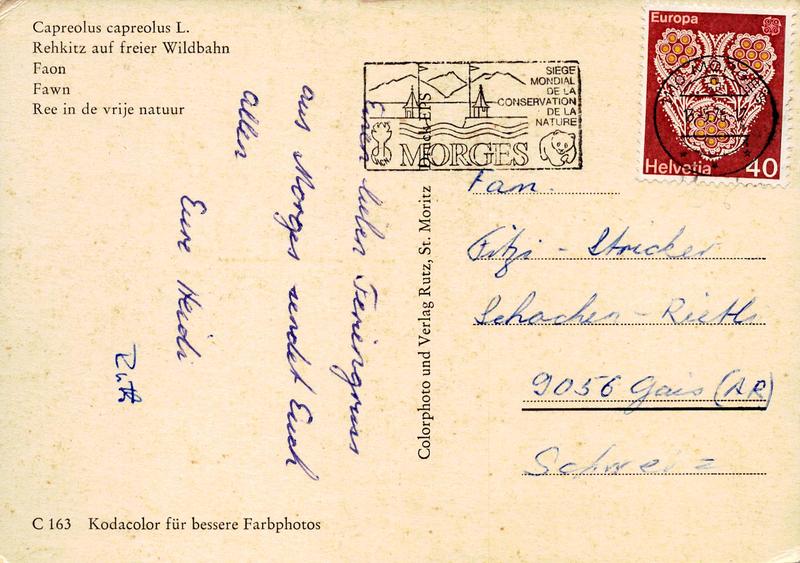 Capreolus capreolus L.
Rehkitz auf freier Wildbahn
Faon
Fawn
Ree in de vrije natuur
Einen lieben Feriengruss
aus Morges sendet Euch
allen
Eure Heidi
Ruth
C 163 Kodacolor für bessere Farbphotos
Colorphoto und Verlag Rutz, St. Moritz Druck EPS
SIEGE
MONDIAL
DE LA
CONSERVATION
DE LA
NATURE
MORGES
Europa
Helvetia 40
Fam.
Fitzi - Stricker
Schachen - Rietli
9056 Gais (AR)
Schweiz